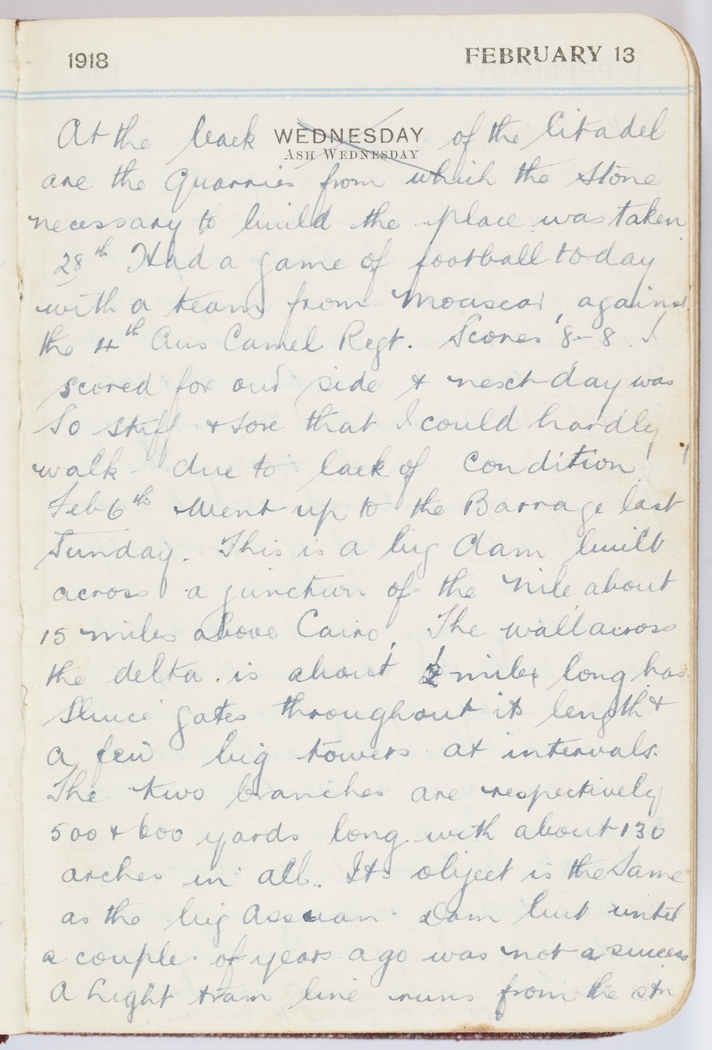 1918 FEBRUARY 13
WEDNESDAY
ASH WEDNESDAY
At the back of the Citadel
are the Quarries from which the stone
necessary to build the place was taken
28th Had a game of football today
with a team from Mouscar, against
the 4th Aus Camel Regt. Scores 8-8. I
scored for our side & next day was
So stiff & sore that I could hardly
walk - due to lack of condition!
Feb 6th Went up to the Barrage last
Sunday. This is a big dam built
across a junction of the Nile about
15 miles above Cairo. The wall across
the delta is about miles long has
Sluice gates throughout its length &
a few big towers at intervals.
The two branches are respectively
500 & 600 yards long with about 130
arches in all. Its object is the Same
as the big Assuan Dam but until
a couple of years ago was not a success
A Light tram line runs from the stn